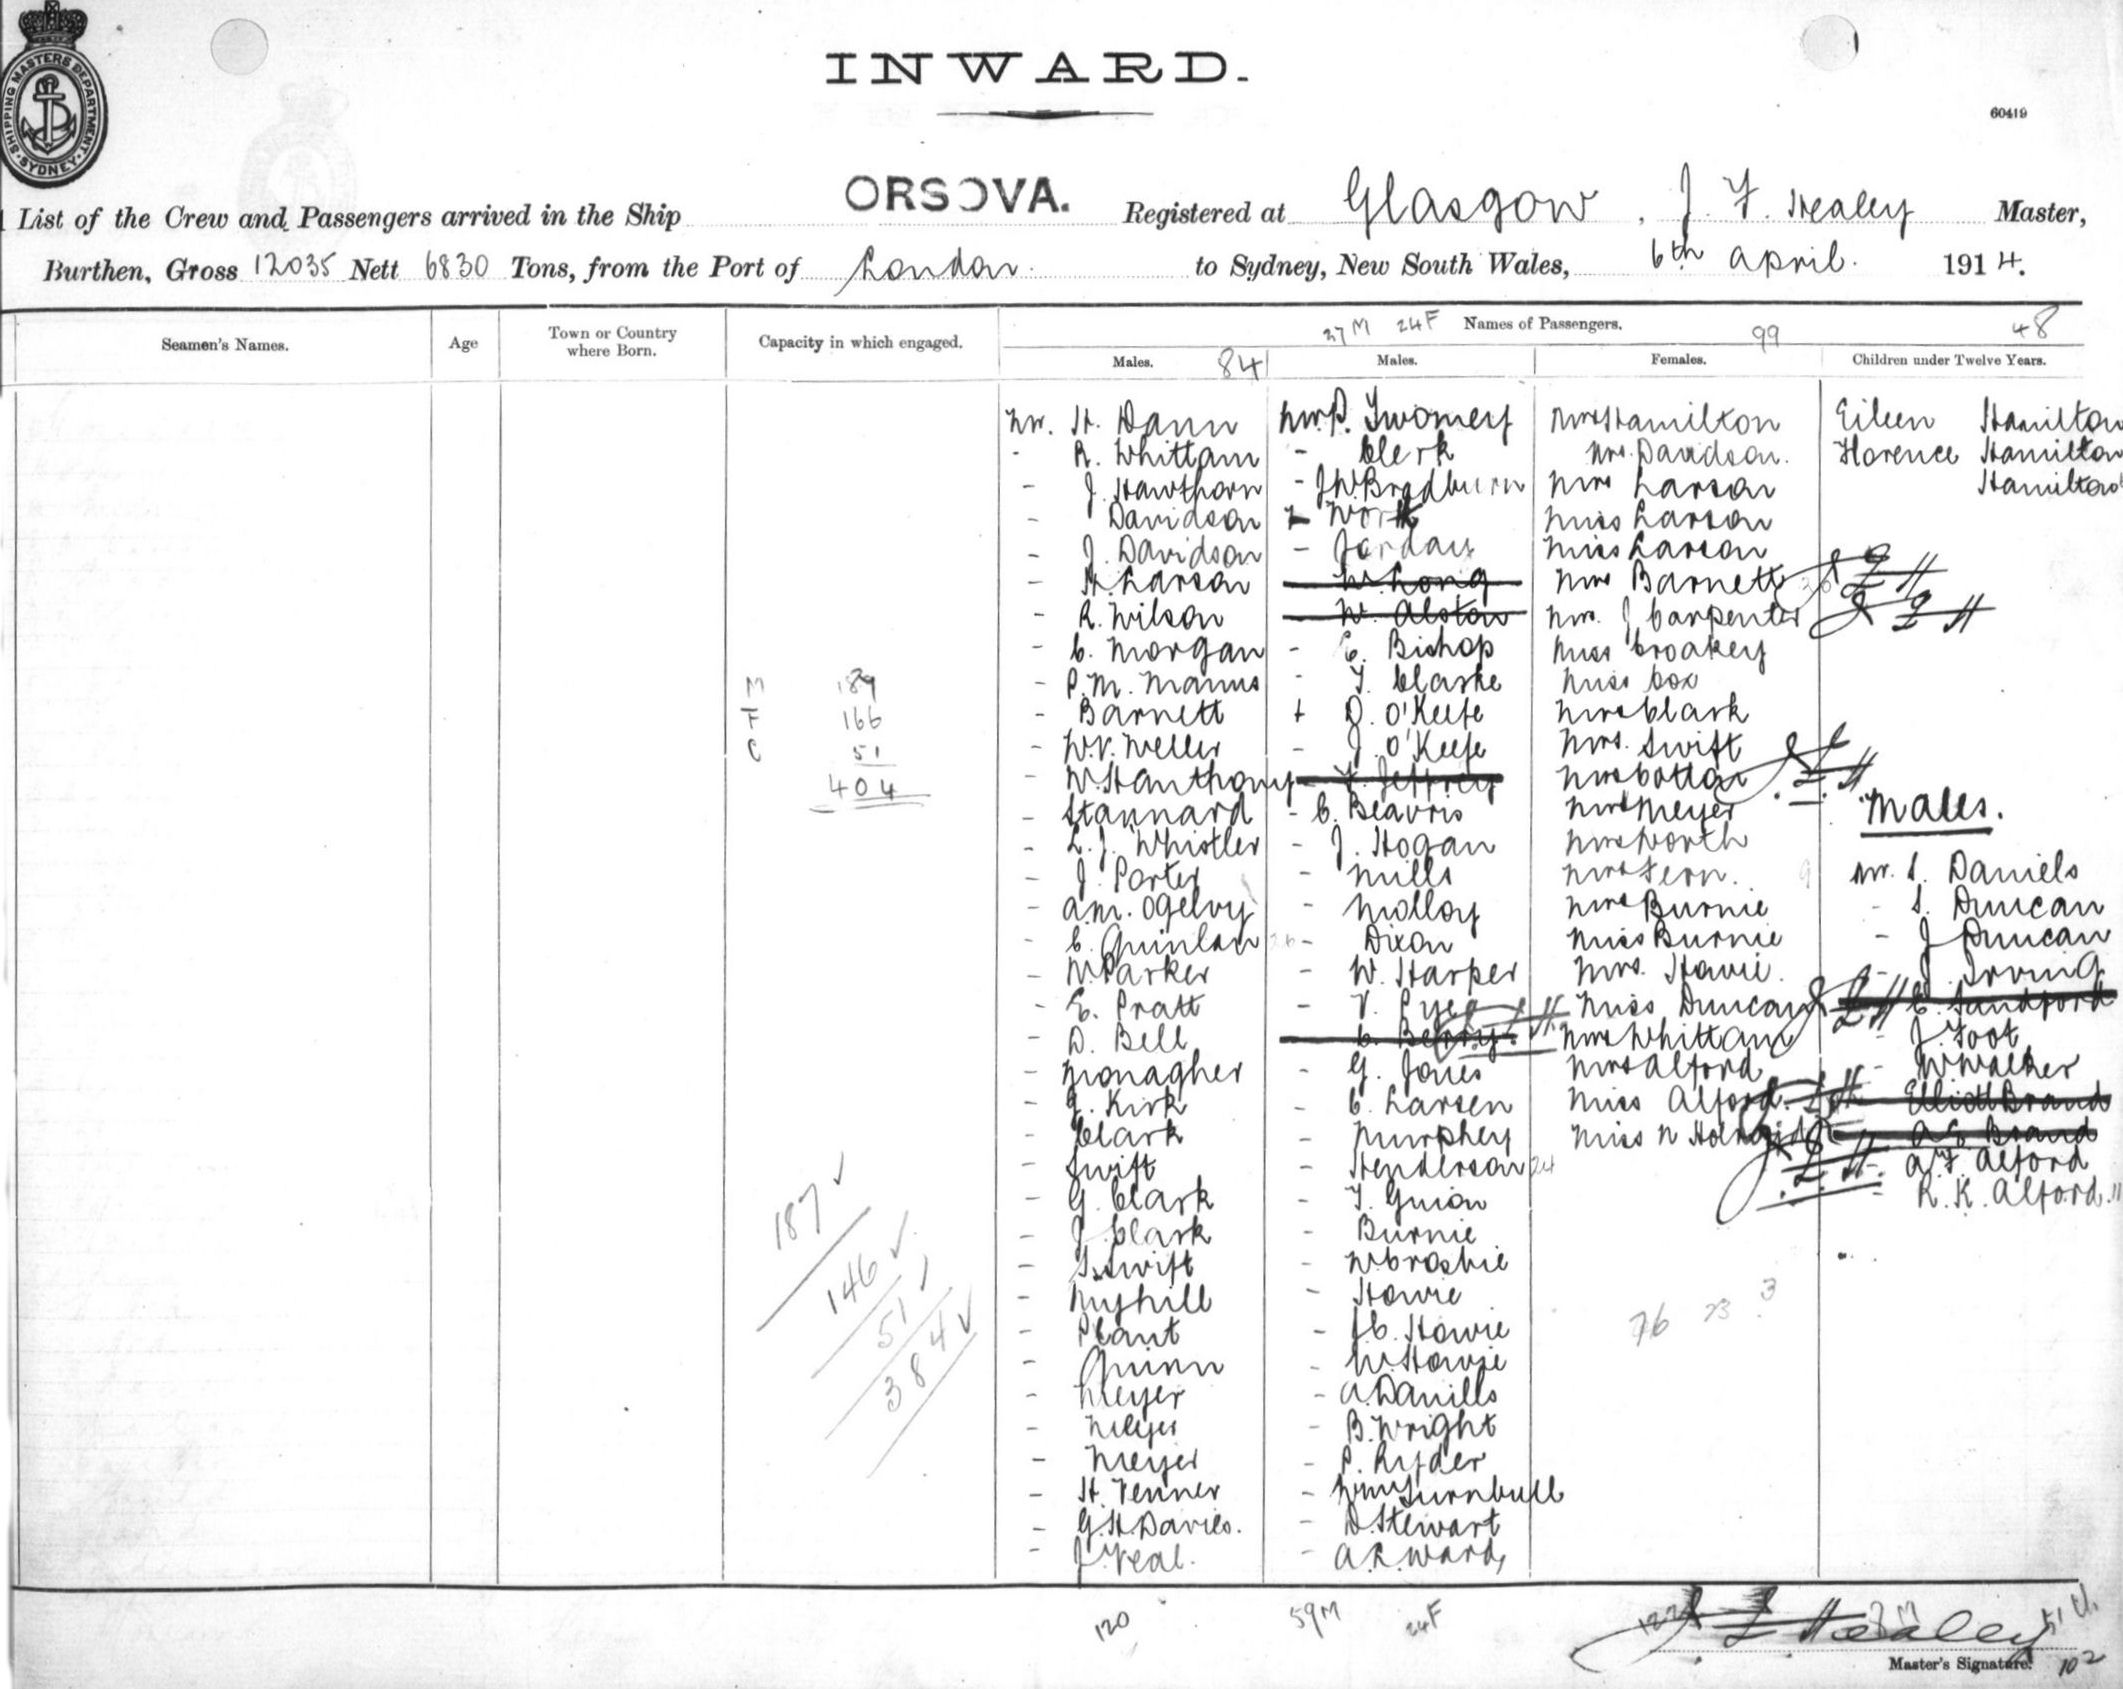 SHIPPING MASTERS DEPARTMENT · SYDNEY ·
INWARD.
60419
List of the Crew and Passengers arrived in the Ship ORSOVA. Registered at Glasgow, J. F. Healey Master,
Burthen, Gross 12035 Nett 6830 Tons, from the Port of London. to Sydney, New South Wales, 6th April. 1914.
Seamen's Names.
Age
Town or Country
where Born.
Capacity in which engaged.
27M 24F Names of Passengers. 99 48
Males. 84
Males.
Females.
Children under Twelve Years.
M 189
F 166
C 51
404
187 ✓
146 ✓
51
384 ✓
Mr. H. Dann
- R. Whittam
- J. Hawthorn
- Davidson
- J. Davidson
- H. Larson
- R. Wilson
- C. Morgan
- P. M. Manus
- Barnett
- W.V. Weller
- W. H anthony
- Stannard
- L. J. Whistler
- J. Porter
- A.M. Ogelvy
- C. Quinlan
- W. Parker
- E. Pratt
- D. Bell
- Monagher
- Kirk
- Clark
- Swift
- G. Clark
- J. Clark
- Swift
- Myhill
- Plant
- Quinn
- Meyer
- Meyer
- Meyer
- H. Venner
- G. H. Davies.
- J. Veal.
120
Mr. P. Twomey
- Clerk
- J W Bradburn
- Worth
- Jordan
W. Long
W. Alston
- E. Bishop
- T. Clarke
+ D. O'Keefe
- J. O'Keefe
Jeffrey
- C. Beavris
- J. Hogan
- Mills
- Molloy
26 - Dixon
- W. Harper
- V. Pyea
C. Berry
- G. Jones
- C. Larsen
- Murphey
- Henderson 24
- T. Guion
- Burnie
- W Crosbie
- Howie
- J.C. Howie
- W. Howie
- A. Daniells
- B. Wright
- P. Ryder
- Wm Turnbull
- D. Stewart
- A. R. Ward,
59M 24F
Mrs Hamilton
Mrs. Davidson.
Mrs Larson
Miss Larson
Miss Larson
Mrs Barnett
Mrs. J Carpenter
Miss Croakey
Miss Cox
Mrs Clark
Mrs. Swift
Mrs Cotton
Mrs Meyer
Mrs Worth
Mrs Fern.
Mrs Burnie
Miss Burnie
Mrs. Howie.
Miss Duncan
Mrs Whittam
Mrs Alford
Miss Alford.
Miss N
76 23 3
Eileen Hamilton
Florence Hamilton
Hamilton
J F H
J F H
J F H
Males.
Mr. S. Daniels
- S. Duncan
- J Duncan
- J. Irving
C. Sandford
- J. Foot
- W Walker
Elliott Brand
Brand
- A. F. Alford
- R. K. Alford. 11
J F Healey
Master's Signature. 102